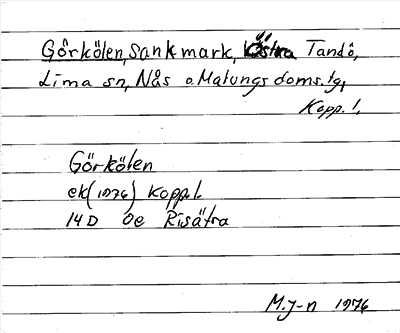 Görkölen, sankmark, Östra Tandö,
Lima sn, Nås o. Malungs doms.tg,
Kopp. l.
Görkölen
ek (1976) Koppl.
14 D 0e Risätra
M. J-n 1976